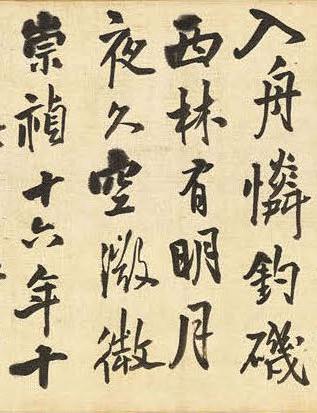 入舟憐釣磯
西林有明月
夜久空微微
崇禎十六年十